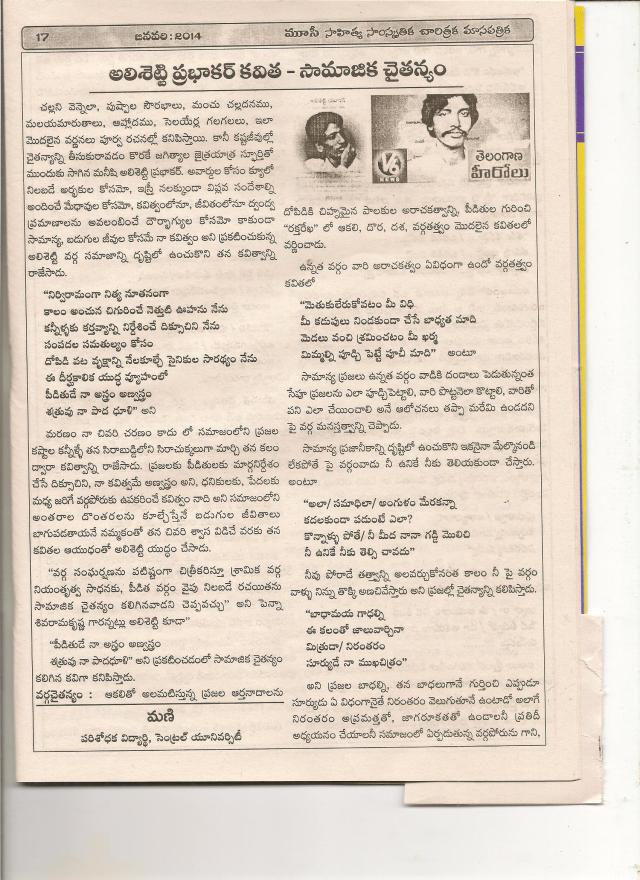 17
జనవరి: 2014
మూసీ సాహిత్య సాంస్కృతిక చారిత్రక మాసపత్రిక
అలిశెట్టి ప్రభాకర్ కవిత - సామాజిక చైతన్యం
చల్లని వెన్నెలా, పుష్పాల సౌరభాలు, మంచు చల్లదనము,
మలయమారుతాలు, ఆహ్లాదము, సెలయేర్ల గలగలలు, ఇలా
మొదలైన వర్ణనలు పూర్వ రచనల్లో కనిపిస్తాయి. కానీ కష్టజీవుల్లో
చైతన్యాన్ని తీసుకురావడం కొరకే జగిత్యాల జైత్రయాత్ర స్ఫూర్తితో
ముందుకు సాగిన మనీషి అలిశెట్టి ప్రభాకర్. అవార్డుల కోసం క్యూలో
నిలబడే అర్భకుల కోసమో, ఇస్త్రీ నలక్కుండా విప్లవ సందేశాల్ని
అందించే మేధావుల కోసమో, కవిత్వంలోనూ, జీవితంలోనూ ద్వంద్వ
ప్రమాణాలను అవలంబించే దౌర్భాగ్యుల కోసమో కాకుండా
సామాన్య, బడుగుల జీవుల కోసమే నా కవిత్వం అని ప్రకటించుకున్న
అలిశెట్టి వర్గ సమాజాన్ని దృష్టిలో ఉంచుకొని తన కవిత్వాన్ని
రాజేసాడు.
"నిర్విరామంగా నిత్య నూతనంగా
కాలం అంచున చిగురించే నెత్తుటి ఊహను నేను
కన్నీళ్ళకు కర్తవ్యాన్ని నిర్దేశించే దిక్సూచిని నేను
సంపదల సమతుల్యం కోసం
దోపిడి వట వృక్షాన్ని నేలకూల్చే సైనికుల సారథ్యం నేను
ఈ దీర్ఘకాలిక యుద్ధ వ్యూహంలో
పీడితుడే నా అస్త్రం అణ్వస్త్రం
శత్రువు నా పాద ధూళి" అని
మరణం నా చివరి చరణం కాదు లో సమాజంలోని ప్రజల
కష్టాల కన్నీళ్ళే తన సిరాబుడ్డిలోని సిరాచుక్కలుగా మార్చి తన కలం
ద్వారా కవిత్వాన్ని రాజేసాడు. ప్రజలకు పీడితులకు మార్గనిర్దేశం
చేసే దిక్సూచిని, నా కవిత్వమే అణ్వస్త్రం అని, ధనికులకు, పేదలకు
మధ్య జరిగే వర్గపోరుకు ఉపకరించే కవిత్వం నాది అని సమాజంలోని
అంతరాల దొంతరలను కూల్చేస్తేనే బడుగుల జీవితాలు
బాగుపడతాయనే నమ్మకంతో తన చివరి శ్వాస విడిచే వరకు తన
కవితల ఆయుధంతో అలిశెట్టి యుద్ధం చేసాడు.
"వర్గ సంఘర్షణను పటిష్టంగా చిత్రీకరిస్తూ శ్రామిక వర్గ
నియంతృత్వ సాధనకు, పీడిత వర్గం వైపు నిలబడే రచయితను
సామాజిక చైతన్యం కలిగినవాడని చెప్పవచ్చు" అని పెన్నా
శివరామకృష్ణ గారన్నట్లు అలిశెట్టి కూడా"
"పీడితుడే నా అస్త్రం అణ్వస్త్రం
శత్రువు నా పాదధూళి" అని ప్రకటించడంలో సామాజిక చైతన్యం
కలిగిన కవిగా కనిపిస్తాడు.
వర్గచైతన్యం : ఆకలితో అలమటిస్తున్న ప్రజల ఆర్తనాదాలను
మణి
పరిశోధక విద్యార్థి, సెంట్రల్ యూనివర్సిటీ
V6
NEWS
తెలంగాణ
హీరోలు
దోపిడికి చిహ్నమైన పాలకుల అరాచకత్వాన్ని, పీడితుల గురించి
"రక్తరేఖ" లో ఆకలి, దొర, దశ, వర్గతత్త్వం మొదలైన కవితలలో
వర్ణించాడు.
ఉన్నత వర్గం వారి అరాచకత్వం ఏవిధంగా ఉండో వర్గతత్త్వం
కవితలో
"మెతుకులేరుకోవటం మీ విధి
మీ కడుపులు నిండకుండా చేసే బాధ్యత మాది
మెడలు వంచి శ్రమించటం మీ ఖర్మ
మిమ్మల్ని పూడ్చి పెట్టే పూచీ మాది" అంటూ
సామాన్య ప్రజలు ఉన్నత వర్గం వాడికి దండాలు పెడుతున్నంత
సేపూ ప్రజలను ఎలా పూడ్చిపెట్టాలి, వారి పొట్టనెలా కొట్టాలి, వారితో
పని ఎలా చేయించాలి అనే ఆలోచనలు తప్పా మరేమి ఉండదని
పై వర్గ మనస్తత్వాన్ని చెప్పాడు.
సామాన్య ప్రజానీకాన్ని దృష్టిలో ఉంచుకొని ఇకనైనా మేల్కొనండి
లేకపోతే పై వర్గంవాడు నీ ఉనికే నీకు తెలియకుండా చేస్తారు.
అంటూ
"అలా/ సమాధిలా/ అంగుళం మేరకన్నా
కదలకుండా పడుంటే ఎలా?
కొన్నాళ్ళు పోతే/ నీ మీద నానా గడ్డి మొలిచి
నీ ఉనికే నీకు తెల్సి చావదు"
నీవు పోరాడే తత్వాన్ని అలవర్చుకోనంత కాలం నీ పై వర్గం
వాళ్ళు నిన్ను తొక్కి అణచివేస్తారు అని ప్రజల్లో చైతన్యాన్ని కలిపిస్తాడు.
"బాధామయ గాధల్ని
ఈ కలంతో జాలువార్చినా
మిత్రుడా/ నిరంతరం
సూర్యుడే నా ముఖచిత్రం"
అని ప్రజల బాధల్ని, తన బాధలుగానే గుర్తించి ఎప్పుడూ
సూర్యుడు ఏ విధంగానైతే నిరంతరం వెలుగుతూనే ఉంటాడో అలాగే
నిరంతరం అప్రమత్తతో, జాగరూకతతో ఉండాలనీ ప్రతిదీ
అధ్యయనం చేయాలనీ సమాజంలో ఏర్పడుతున్న వర్గపోరును గాని,